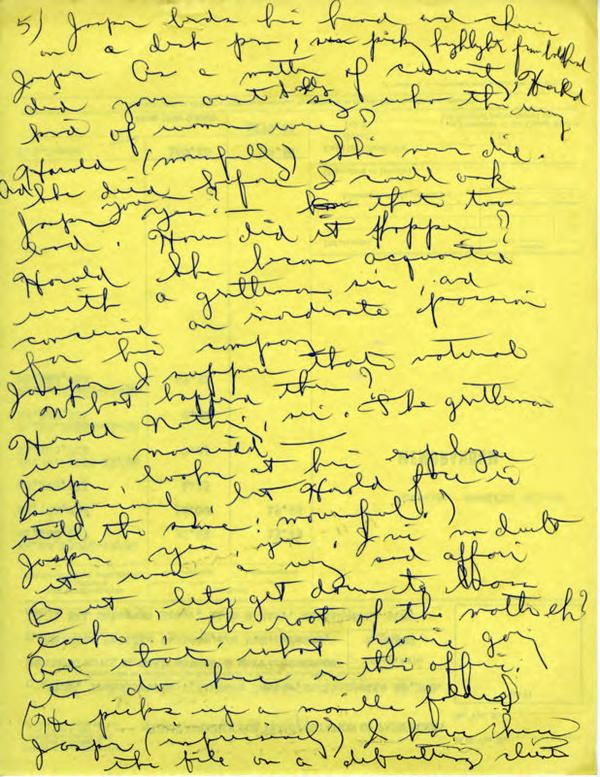 5) Jasper hides his head and chin
on a desk pen, picks highlight from bald head
Jasper As a matter of curiosity, Harold
did your aunt Sally say who the wrong
kind of women were?
Harold (mournfully) She never did.
She died before I could ask
Jasper yes. — that's too
bad. How did it happen?
Harold She became acquainted
with a gentleman, sir, and
conceived an inordinate passion
for his company
Jasper I suppose that's natural
What happened then?
Harold Nothing, sir. The gentleman
was married —
Jasper, looks at his employee
suspiciously but Harold face is
still the same, mournful.)
Jasper yes, yes. I'm no doubt
it was a very sad affair
But, let's get down to
the root of the matter eh?
And that's what you're going
to do here in this office.
(He picks up a manila folder)
Jasper ( ) I have here
the file on a debauching client